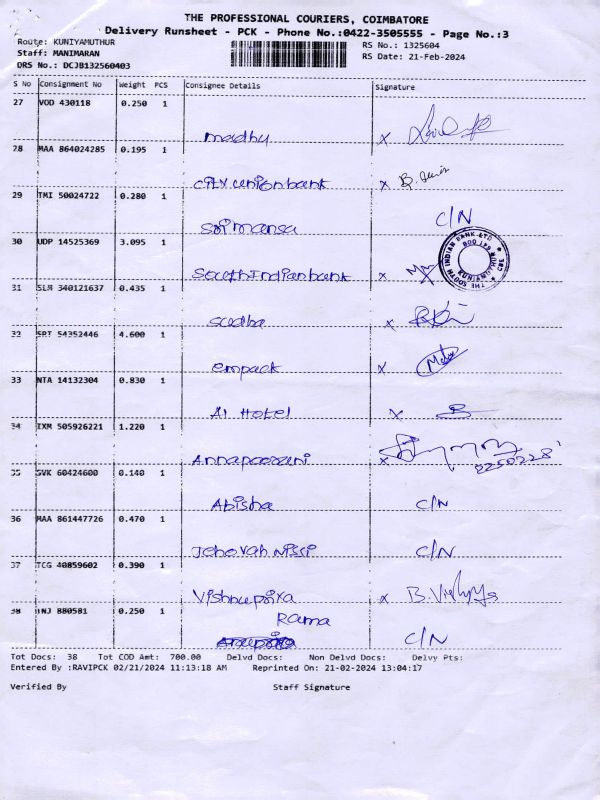 THE PROFESSIONAL COURIERS, COIMBATORE
Delivery Runsheet - PCK - Phone No.:0422-3505555 - Page No.:3
Route: KUNIYAMUTHUR
RS No.: 1325604
Staff: MANIMARAN
RS Date: 21-Feb-2024
DRS No.: DCJB132560403
S No Consignment No Weight PCS Consignee Details Signature
27 VOD 430118 0.250 1
madhu x
28 MAA 864024285 0.195 1
city union bank x B.
29 TMI 50024722 0.280 1
Sri mansa C/N
30 UDP 14525369 3.095 1
South Indian bank x
THE SOUTH INDIAN BANK LTD
KUNIAMUTHUR
CBE
31 SLM 340121637 0.435 1
sudha x
32 SRT 54352446 4.600 1
empack x
33 NTA 14132304 0.830 1
A1 Hotel x
34 IXM 505926221 1.220 1
Annapoorani x
35 GVK 60424600 0.140 1
Abisha C/N
36 MAA 861447726 0.470 1
Jehovah Nissi C/N
37 TCG 40859602 0.390 1
Vishnupriya x
Rama
38 INJ 880581 0.250 1
C/N
Tot Docs: 38 Tot COD Amt: 700.00 Delvd Docs: Non Delvd Docs: Delvy Pts:
Entered By :RAVIPCK 02/21/2024 11:13:18 AM Reprinted On: 21-02-2024 13:04:17
Verified By Staff Signature